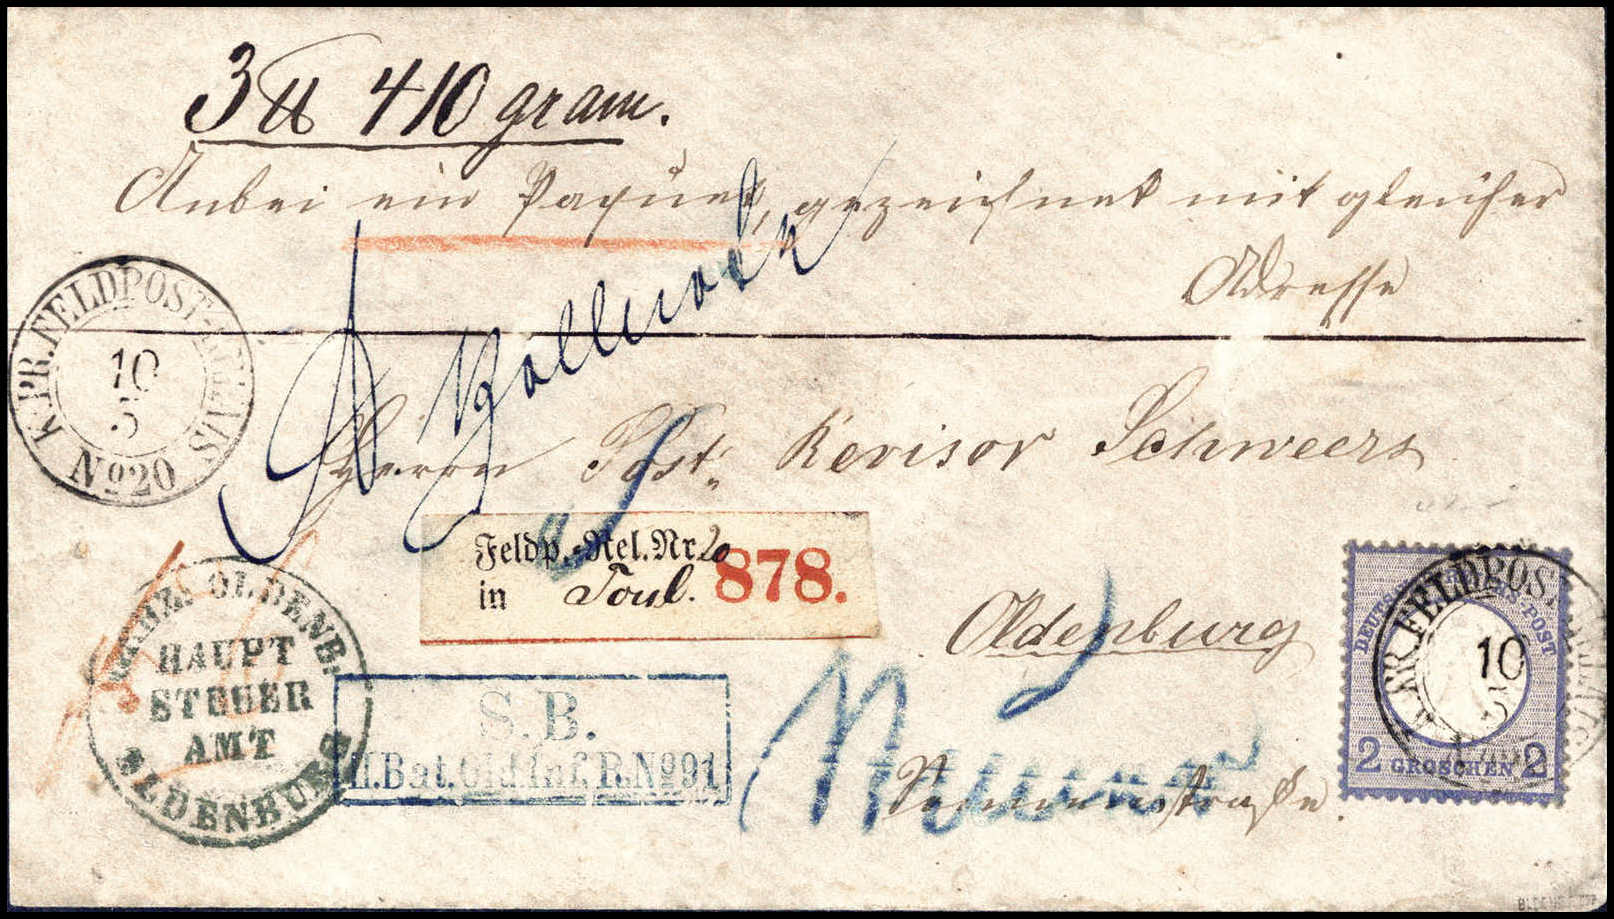 3 ℔ 410 gram.
Anbei ein Paquet, gezeichnet mit gleicher
Adresse
K. PR. FELDPOST-RELAIS
10
5
No 20
Herrn Post Revisor Schweers
Feldp.-Rel. Nr. 20
in Toul. 878.
Oldenburg
GROSHZ. OLDENB.
HAUPT
STEUER
AMT
OLDENBURG
S. B.
II. Bat. Old. Inf. R. No 91
DEUTSCHE REICHS-POST
2 GROSCHEN 2
K. PR. FELDPOST-RELAIS
10
5